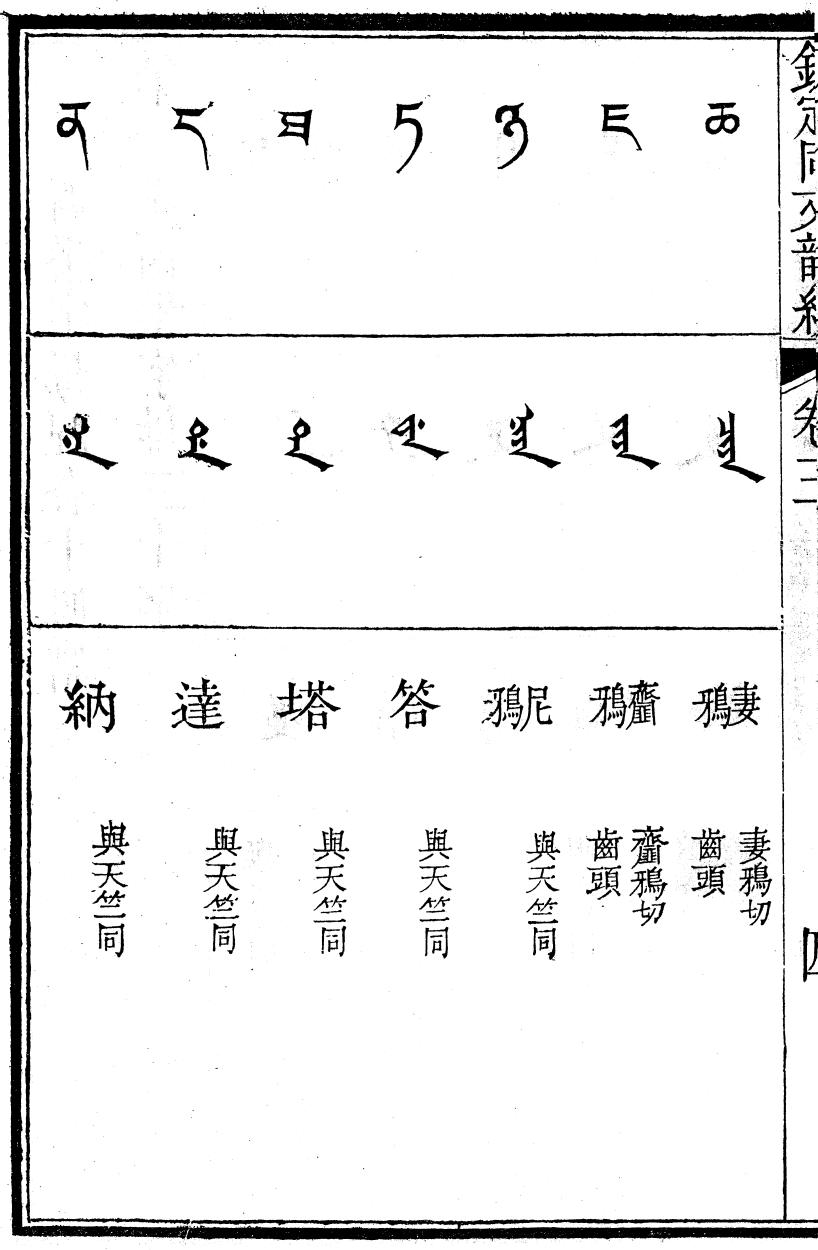 欽定同文韻統 卷三 四
ཆ
妻鴉
妻鴉切
齒頭
ཇ
齏鴉
齏鴉切
齒頭
ཉ
尼鴉
與天竺同
ཏ
答
與天竺同
ཐ
塔
與天竺同
ད
達
與天竺同
ན
納
與天竺同